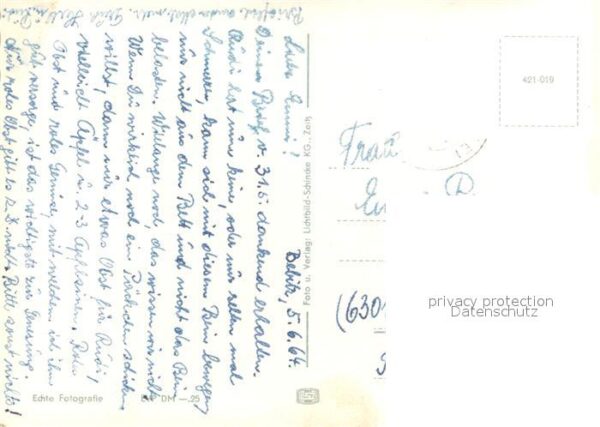 Belzig, 5.6.64.
Liebe Emmi!
Deinen Brief v. 31.5. dankend erhalten.
Rudi hat nun keine oder nur selten mal
Schmerzen, kann sich mit diesem Bein bewegen,
nur nicht aus dem Bett und nicht das Bein
belasten. Wielange noch, das wissen wir nicht.
Wenn Du wirklich noch ein Päckchen schicken
willst, dann nur etwas Obst für Rudi,
vielleicht Äpfel u. 2-3 Apfelsinen. Rotes
Obst und rotes Gemüse, mit welchem ich ihn
gut versorge, ist das wichtigste zur Genesung.
Aber rotes Obst gibt es z.B. nicht. Bitte sonst nichts!
Foto u. Verlag: Lichtbild-Schincke KG., Zeitz
421-019
Frau
(6301
privacy protection
Datenschutz
Echte Fotografie
DM -.25